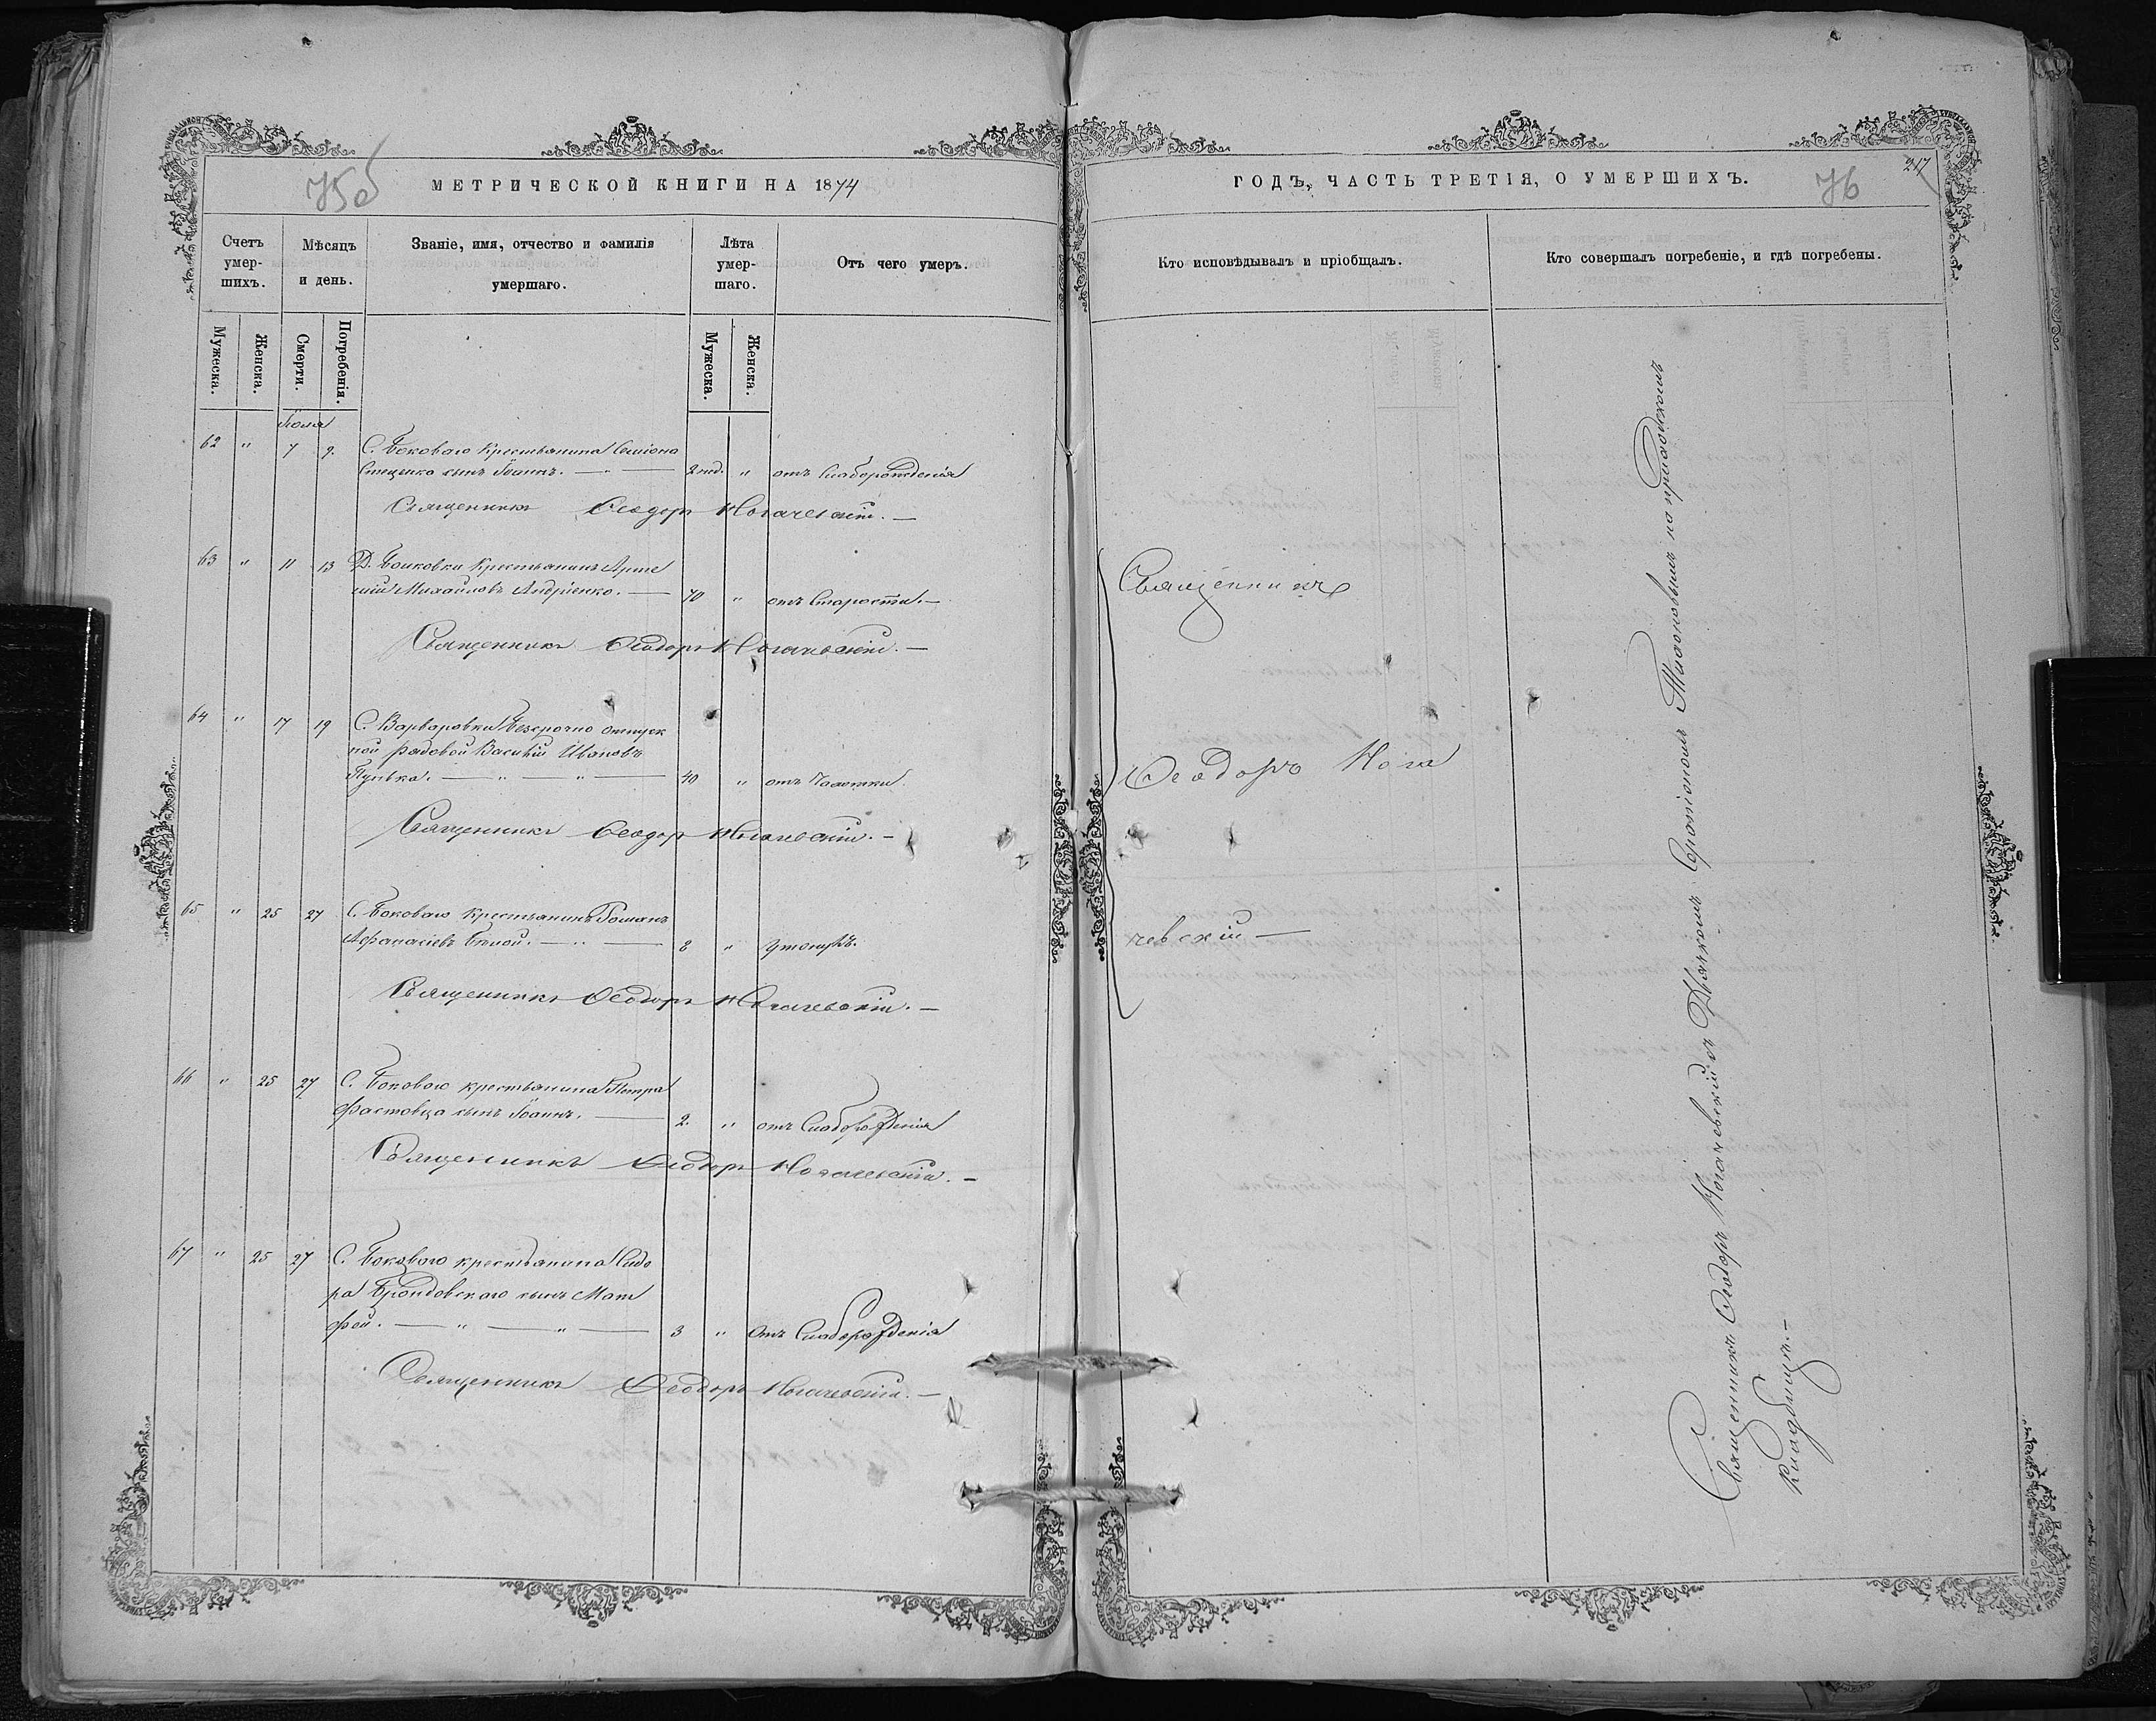 75об
МЕТРИЧЕСКОЙ КНИГИ НА 1874
Счетъ умер-шихъ.
Мѣсяцъ и день.
Званіе, имя, отчество и фамилія умершаго.
Лѣта умер-шаго.
Отъ чего умеръ.
Мужеска.
Женска.
Смерти.
Погребенія.
Мужеска.
Женска.
Іюля
62 " 7 9. С. Боковаго Крестьянина Семіона
Стеценка сынъ Іоаннъ. — " — 2 нед. " отъ Слаборожденія
Священникъ Ѳеодоръ Ногачевскій. —
63 " 11 13 Д. Боиковки Крестьянинъ Арте
мій Михайловъ Андріенко. — 70 " отъ Старости. —
Священникъ Ѳеодоръ Ногачевскій. —
64 " 17 19 С. Варваровки Безсрочно отпуск
ной рядовой Василій Ивановъ
— " — " — 40 " отъ Чахотки.
Священникъ Ѳеодоръ Ногачевскій. —
65 " 25 27 С. Боковаго Крестьянинъ Романъ
Афанасіевъ Бѣлой. — " — 8 " Утонулъ.
Священникъ Ѳеодоръ Ногачевскій. —
66 " 25 27 С. Боковаго крестьянина Петра
Фастовца сынъ Іоаннъ. — 2. " отъ Слаборожденія
Священникъ Ѳеодоръ Ногачевскій. —
67 " 25 27 С. Боковаго крестьянина Сидо
ра Брондовскаго сынъ Мат
фей. — " — " — 3 " Отъ Слаборожденія
Священникъ Ѳеодоръ Ногачевскій. —
ГОДЪ, ЧАСТЬ ТРЕТІЯ, О УМЕРШИХЪ.
76
217
Кто исповѣдывалъ и пріобщалъ.
Кто совершалъ погребеніе, и гдѣ погребены.
Священникъ
Ѳеодоръ Нога
чевскій —
Священникъ Ѳеодоръ Ногачевскій съ Дьячкомъ Тихоновымъ на приходскомъ
Кладбищѣ. —